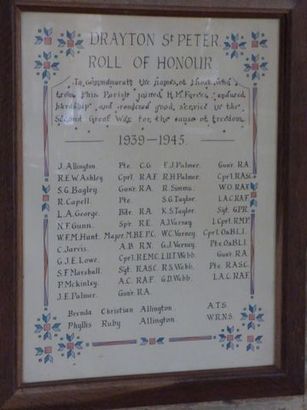 DRAYTON St PETER
ROLL OF HONOUR
To commemorate the names of those who
from this Parish joined H.M. Forces, endured
hardship and rendered good service in the
Second Great War for the cause of freedom.
1939-1945.
J. Allington. Pte. C.G. F.J. Palmer. Gunr. R.A.
R.E.W. Ashley. Cprl. R.A.F. R.H. Palmer. Cprl. R.A.S.C.
S.G. Bagley. Gunr. R.A. R. Simms. W.O. R.A.F.
R. Capell. Pte. S.G. Taylor. L.A.C. R.A.F.
L.A. George. Bdr. R.A. K.S. Taylor. Sigt. G.P.R.
N.F. Gunn. Spr. R.E. A.J. Varney. L.Cprl. R.M.P.
W.F.M. Hunt. Major M.B.E. W.C. Varney. Cprl. Ox.B.L.I.
C. Jarvis. A.B. R.N. G.J. Varney. Pte. Ox.B.L.I.
G.J.E. Lowe. Cprl. R.E.M.C. Webb. Gunr. R.A.
S.F. Marshall. Sgt. R.A.S.C. R.S. Webb. Pte. R.A.S.C.
P. Mckinley. A.C. R.A.F. G.D. Webb. L.A.C. R.A.F.
J.E. Palmer. Gunr. R.A.
Brenda Christian Allington. A.T.S.
Phyllis Ruby Allington. W.R.N.S.